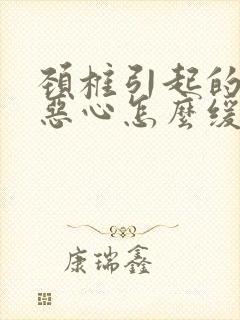 頚椎引起的
惡心怎麼缓
康瑞鑫